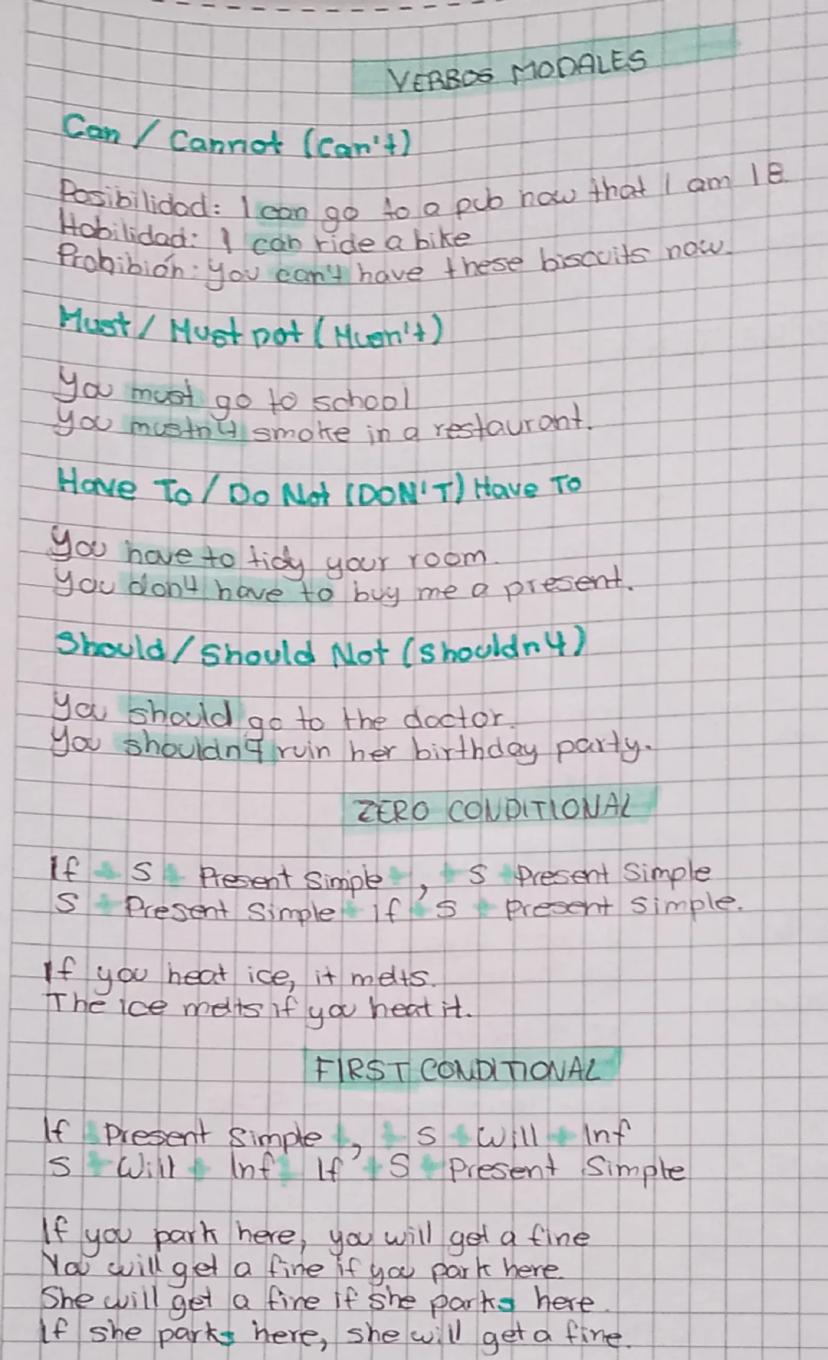 VERBOS MODALES
Can / Cannot (Can't)
Posibilidad: I can go to a pub now that I am 18.
Habilidad: I can ride a bike
Prohibión: you can't have these biscuits now.
Must / Must not (Musn't)
You must go to school
You mustn't smoke in a restaurant.
Have To / Do Not (DON'T) Have To
You have to tidy your room.
You don't have to buy me a present.
Should / Should Not (Shouldn't)
You should go to the doctor.
You shouldn't ruin her birthday party.
ZERO CONDITIONAL
If + S + Present Simple + , + S + Present Simple
S + Present Simple + If + S + Present Simple.
If you heat ice, it melts.
The ice melts if you heat it.
FIRST CONDITIONAL
If + Present Simple + , + S + Will + Inf
S + Will + Inf + If + S + Present Simple
If you park here, you will get a fine
You will get a fine if you park here.
She will get a fine if she parks here.
If she parks here, she will get a fine.